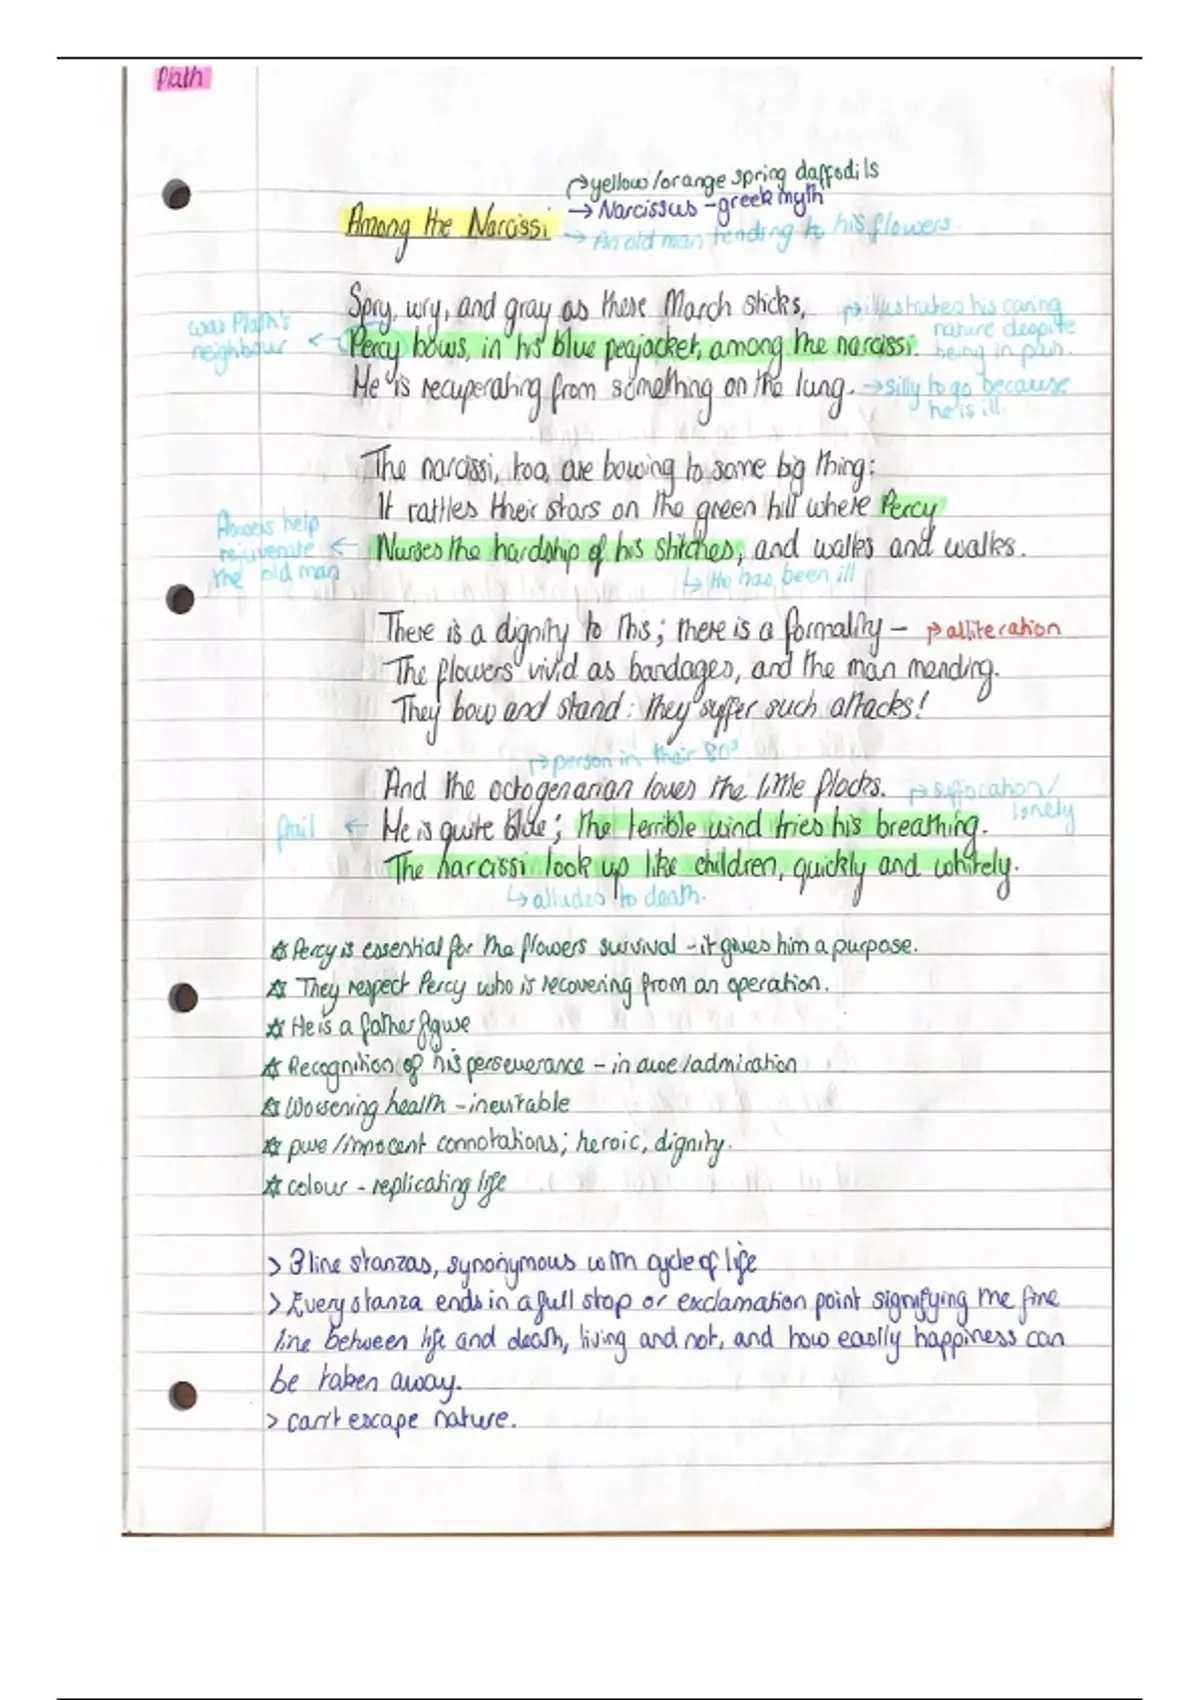 Plath
↱yellow/orange spring daffodils
→ Narcissus - greek myth
Among the Narcissi
→ An old man tending to his flowers
Spry, wry, and gray as these March sticks,
↱illustrates his caring
nature despite
being in pain.
was Plath's
neighbour ←
Percy bows, in his blue peajacket, among the narcissi.
He is recuperating from something on the lung.
→silly to go because
he is ill.
The narcissi, too, are bowing to some big thing:
It rattles their stars on the green hill where Percy
flowers help
rejuvenate ←
the old man
Nurses the hardship of his stitches, and walks and walks.
↳ He has been ill
There is a dignity to this; there is a formality -
↱alliteration
The flowers vivid as bandages, and the man mending.
They bow and stand: they suffer such attacks!
↱person in their 80s
And the octogenarian loves the little flocks.
↱suffocation/
lonely
frail ←
He is quite blue; the terrible wind tries his breathing.
The narcissi look up like children, quickly and whitely.
↳alludes to death.
☆ Percy is essential for the flowers survival - it gives him a purpose.
☆ They respect Percy who is recovering from an operation.
☆ He is a father figure
☆ Recognition of his perseverance - in awe/admiration
☆ Worsening health - inevitable
☆ pure/innocent connotations; heroic, dignity.
☆ colour - replicating life
> 3 line stanzas, synonymous with cycle of life
> Every stanza ends in a full stop or exclamation point signifying the fine
line between life and death, living and not, and how easily happiness can
be taken away.
> can't escape nature.